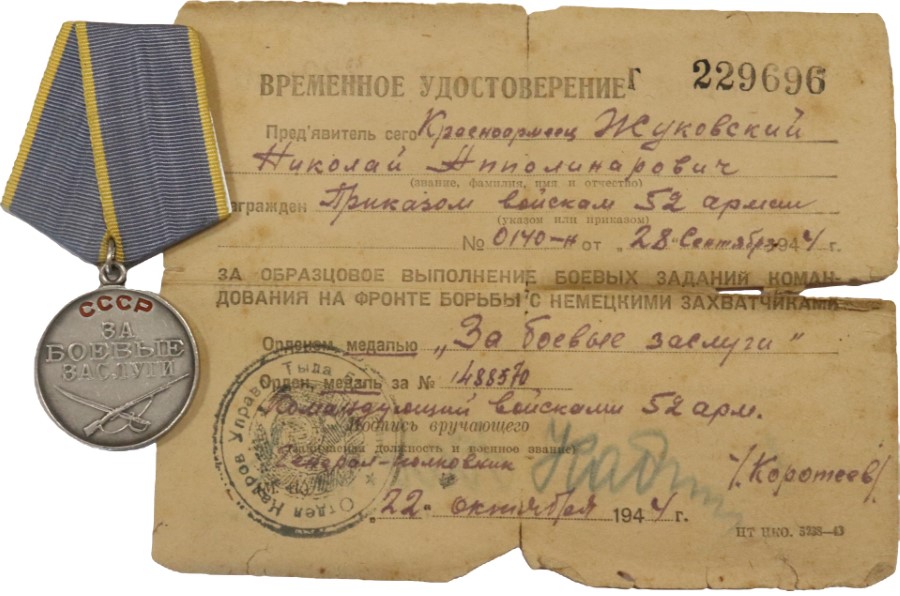 СССР
ЗА
БОЕВЫЕ
ЗАСЛУГИ
ВРЕМЕННОЕ УДОСТОВЕРЕНИЕ Г 229696
Пред'явитель сего Красноармеец Жуковский
Николай Апполинарович
(звание, фамилия, имя и отчество)
награжден Приказом войскам 52 армии
(указом или приказом)
№ 0140-н от „28" Сентября 1944 г.
ЗА ОБРАЗЦОВОЕ ВЫПОЛНЕНИЕ БОЕВЫХ ЗАДАНИЙ КОМАН-
ДОВАНИЯ НА ФРОНТЕ БОРЬБЫ С НЕМЕЦКИМИ ЗАХВАТЧИКАМИ
Орденом, медалью „За боевые заслуги"
Орден, медаль за № 1488570
Командующий войсками 52 арм.
Подпись вручающего
должность и военное звание)
Генерал-полковник /Коротеев/
„22" октября 1944 г.
Отдел Кадров Управ. Тыла
НТ НКО. 3238—43